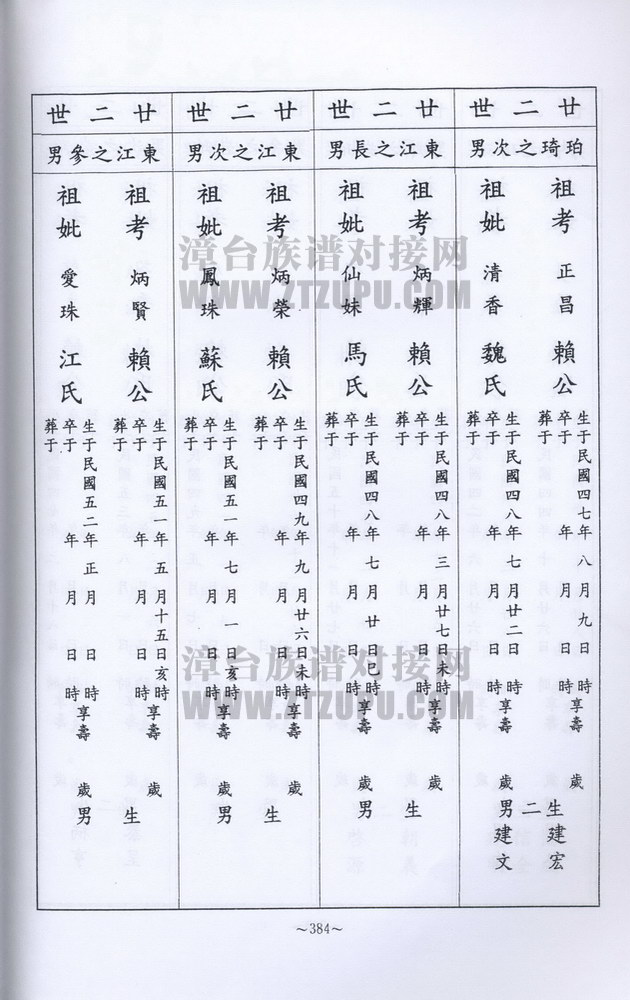 廿二世
珀琦之次男
祖考 正昌 賴公
生于民國四七年八月九日
卒于 年 月 日 時
葬于
歲
祖妣 清香 魏氏
生于民國四八年七月廿二日 時享壽 歲
卒于 年 月 日
葬于
生二男
建宏
建文
廿二世
東江之長男
祖考 炳輝 賴公
生于民國四八年三月廿七日未時享壽 歲
卒于 年 月 日 時
葬于
祖妣 仙妹 馬氏
生于民國四八年七月廿日巳時享壽 歲
卒于 年 月 日 時
葬于
生 男
廿二世
東江之次男
祖考 炳榮 賴公
生于民國四九年九月廿六日未時享壽 歲
卒于 年 月 日 時
葬于
祖妣 鳳珠 蘇氏
生于民國五一年七月一日亥時享壽 歲
卒于 年 月 日 時
葬于
生 男
廿二世
東江之參男
祖考 炳賢 賴公
生于民國五一年五月十五日亥時享壽 歲
卒于 年 月 日 時
葬于
祖妣 愛珠 江氏
生于民國五二年正月 日 時享壽 歲
卒于 年 月 日 時
葬于
生 男
漳台族谱对接网
WWW.ZTZUPU.COM
漳台族谱对接网
WWW.ZTZUPU.COM
~384~